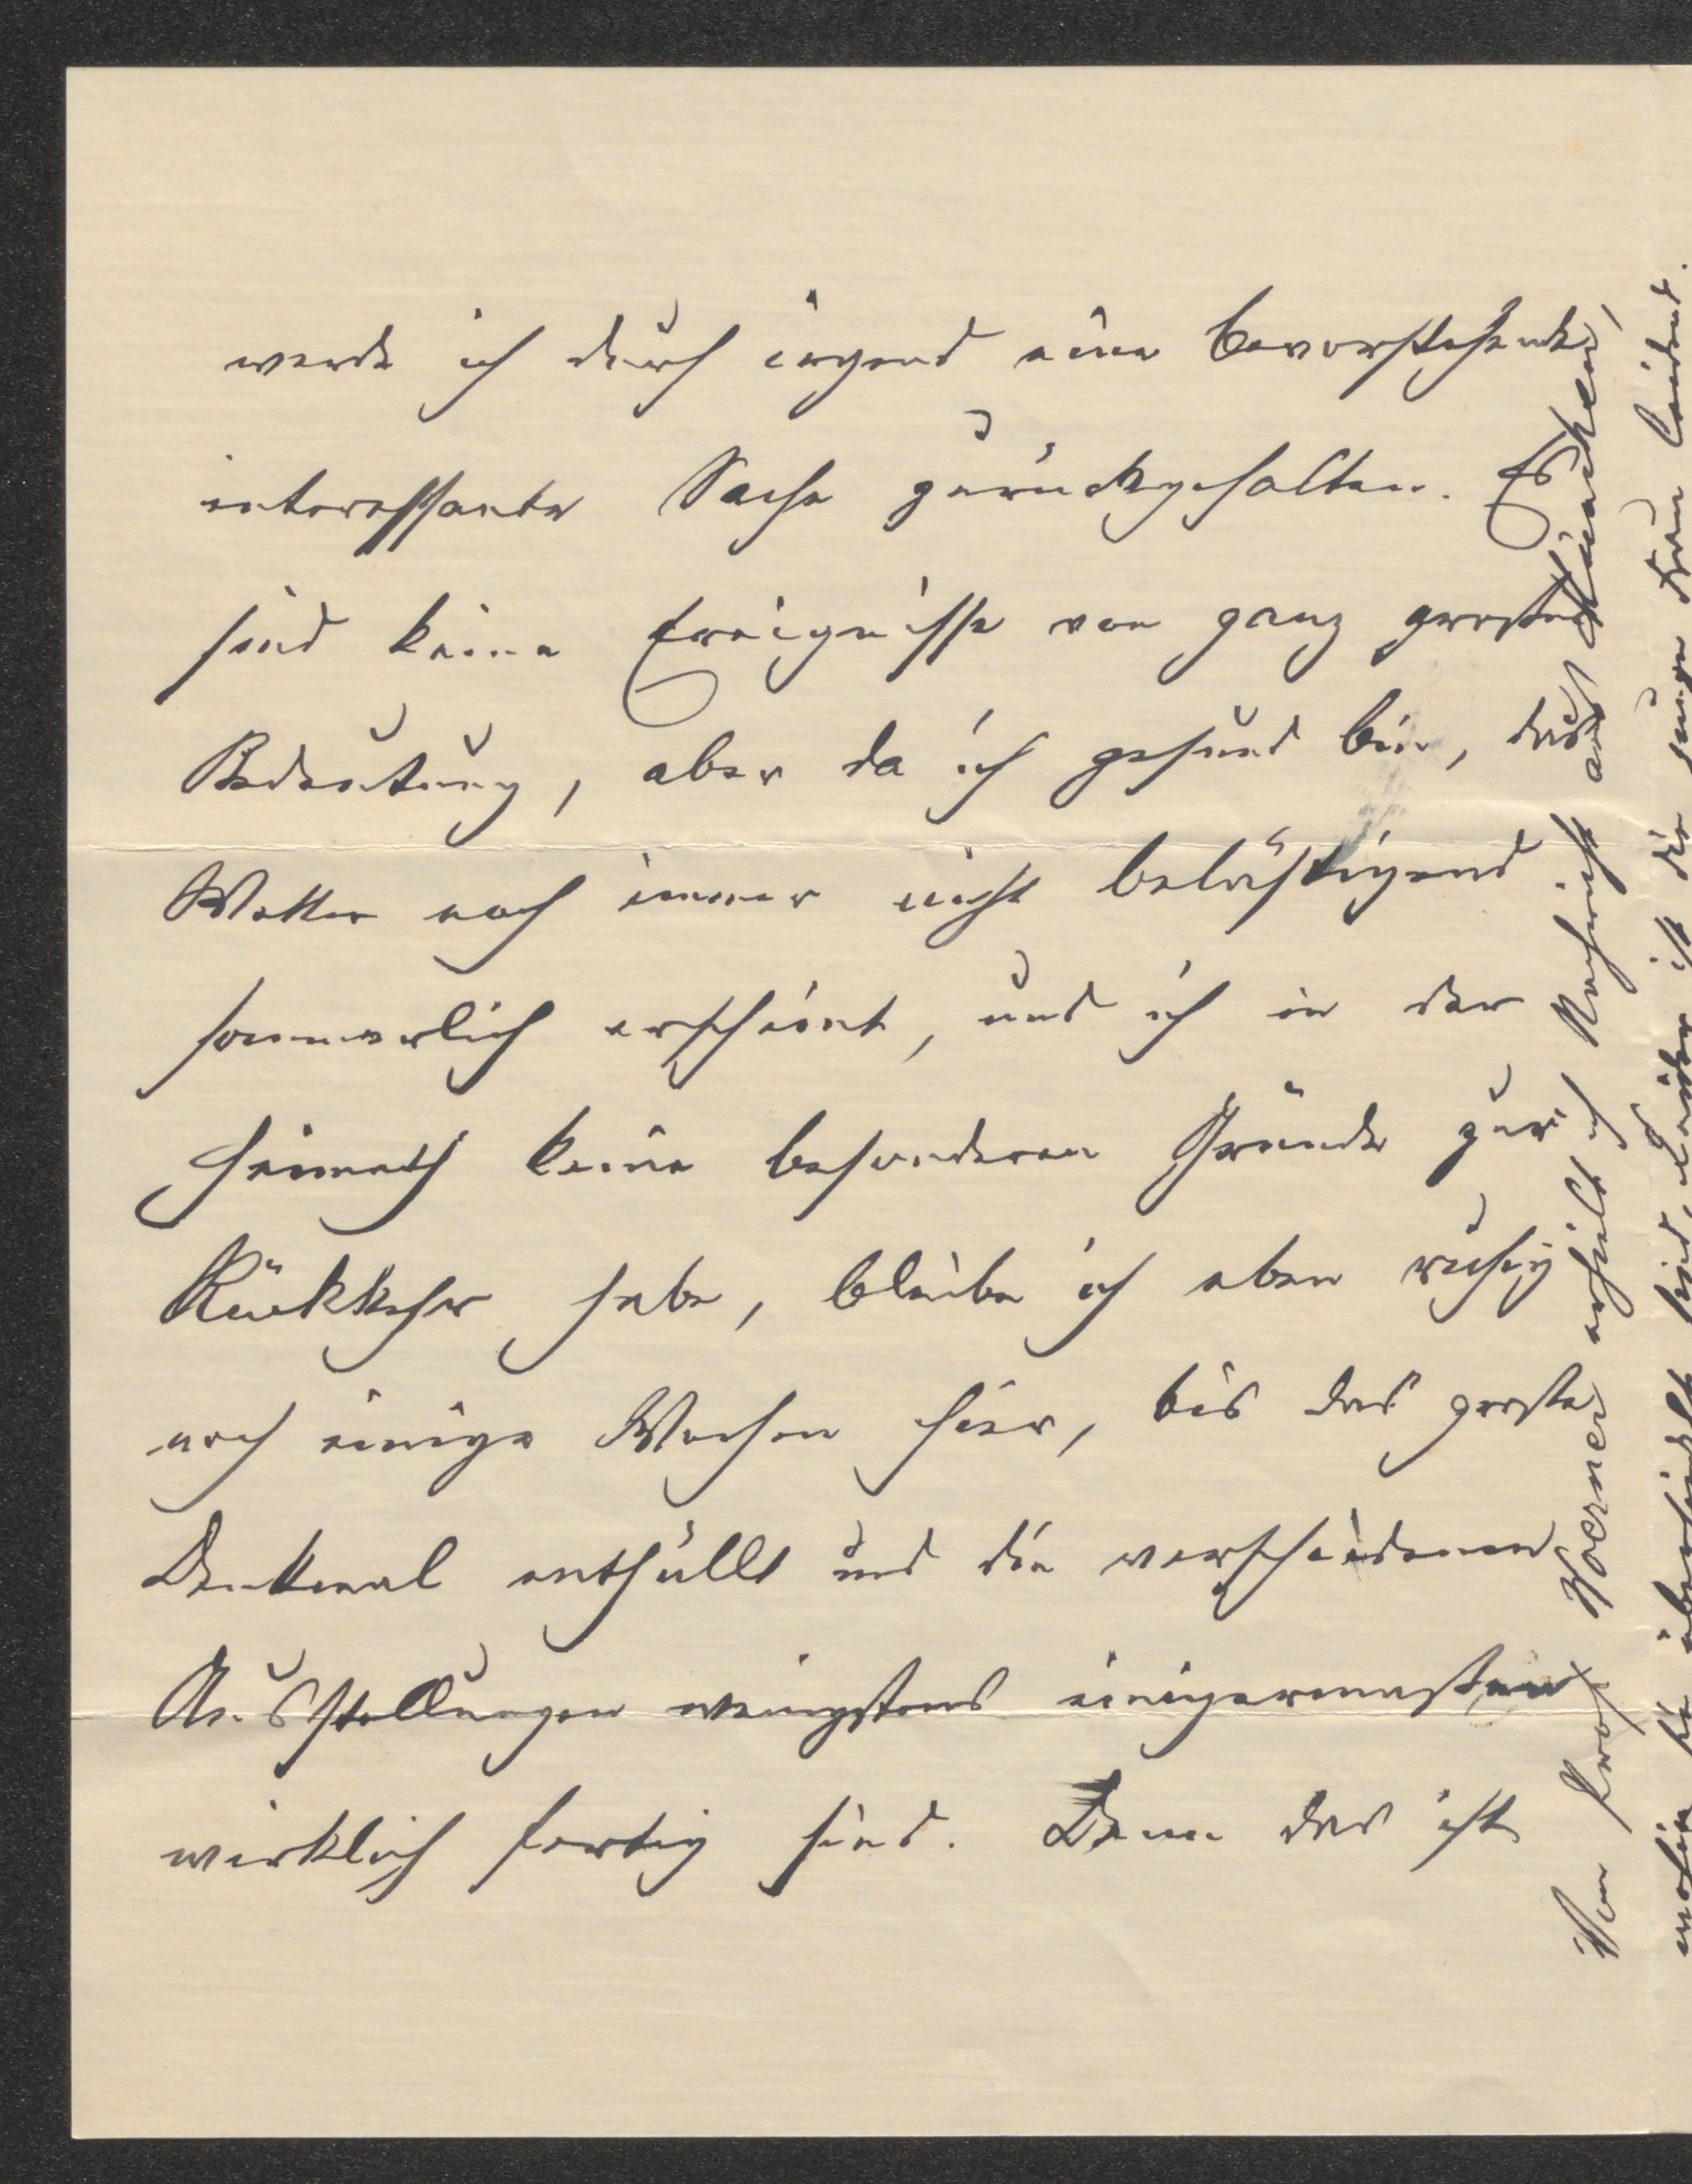 werde ich durch irgend eine bevorstehende
interessante Sache zurückgehalten. Es
sind keine Ereignisse von ganz grosser
Bedeutung, aber da ich gesund bin, das
Wetter noch immer nicht belästigend
sommerlich erscheint, und ich in der
Heimath keine besonderen Gründe zur
Rückkehr habe, bleibe ich eben ruhig
noch einige Wochen hier, bis das grosse
Denkmal enthüllt und die verschiedenen
Ausstellungen wenigstens einigermassen
wirklich fertig sind. Denn das ist
Von Prof. Hoerner erhielt ich Nachricht aus München,
wohin sie übersiedelt sind. Leider ist die junge Frau leidend.